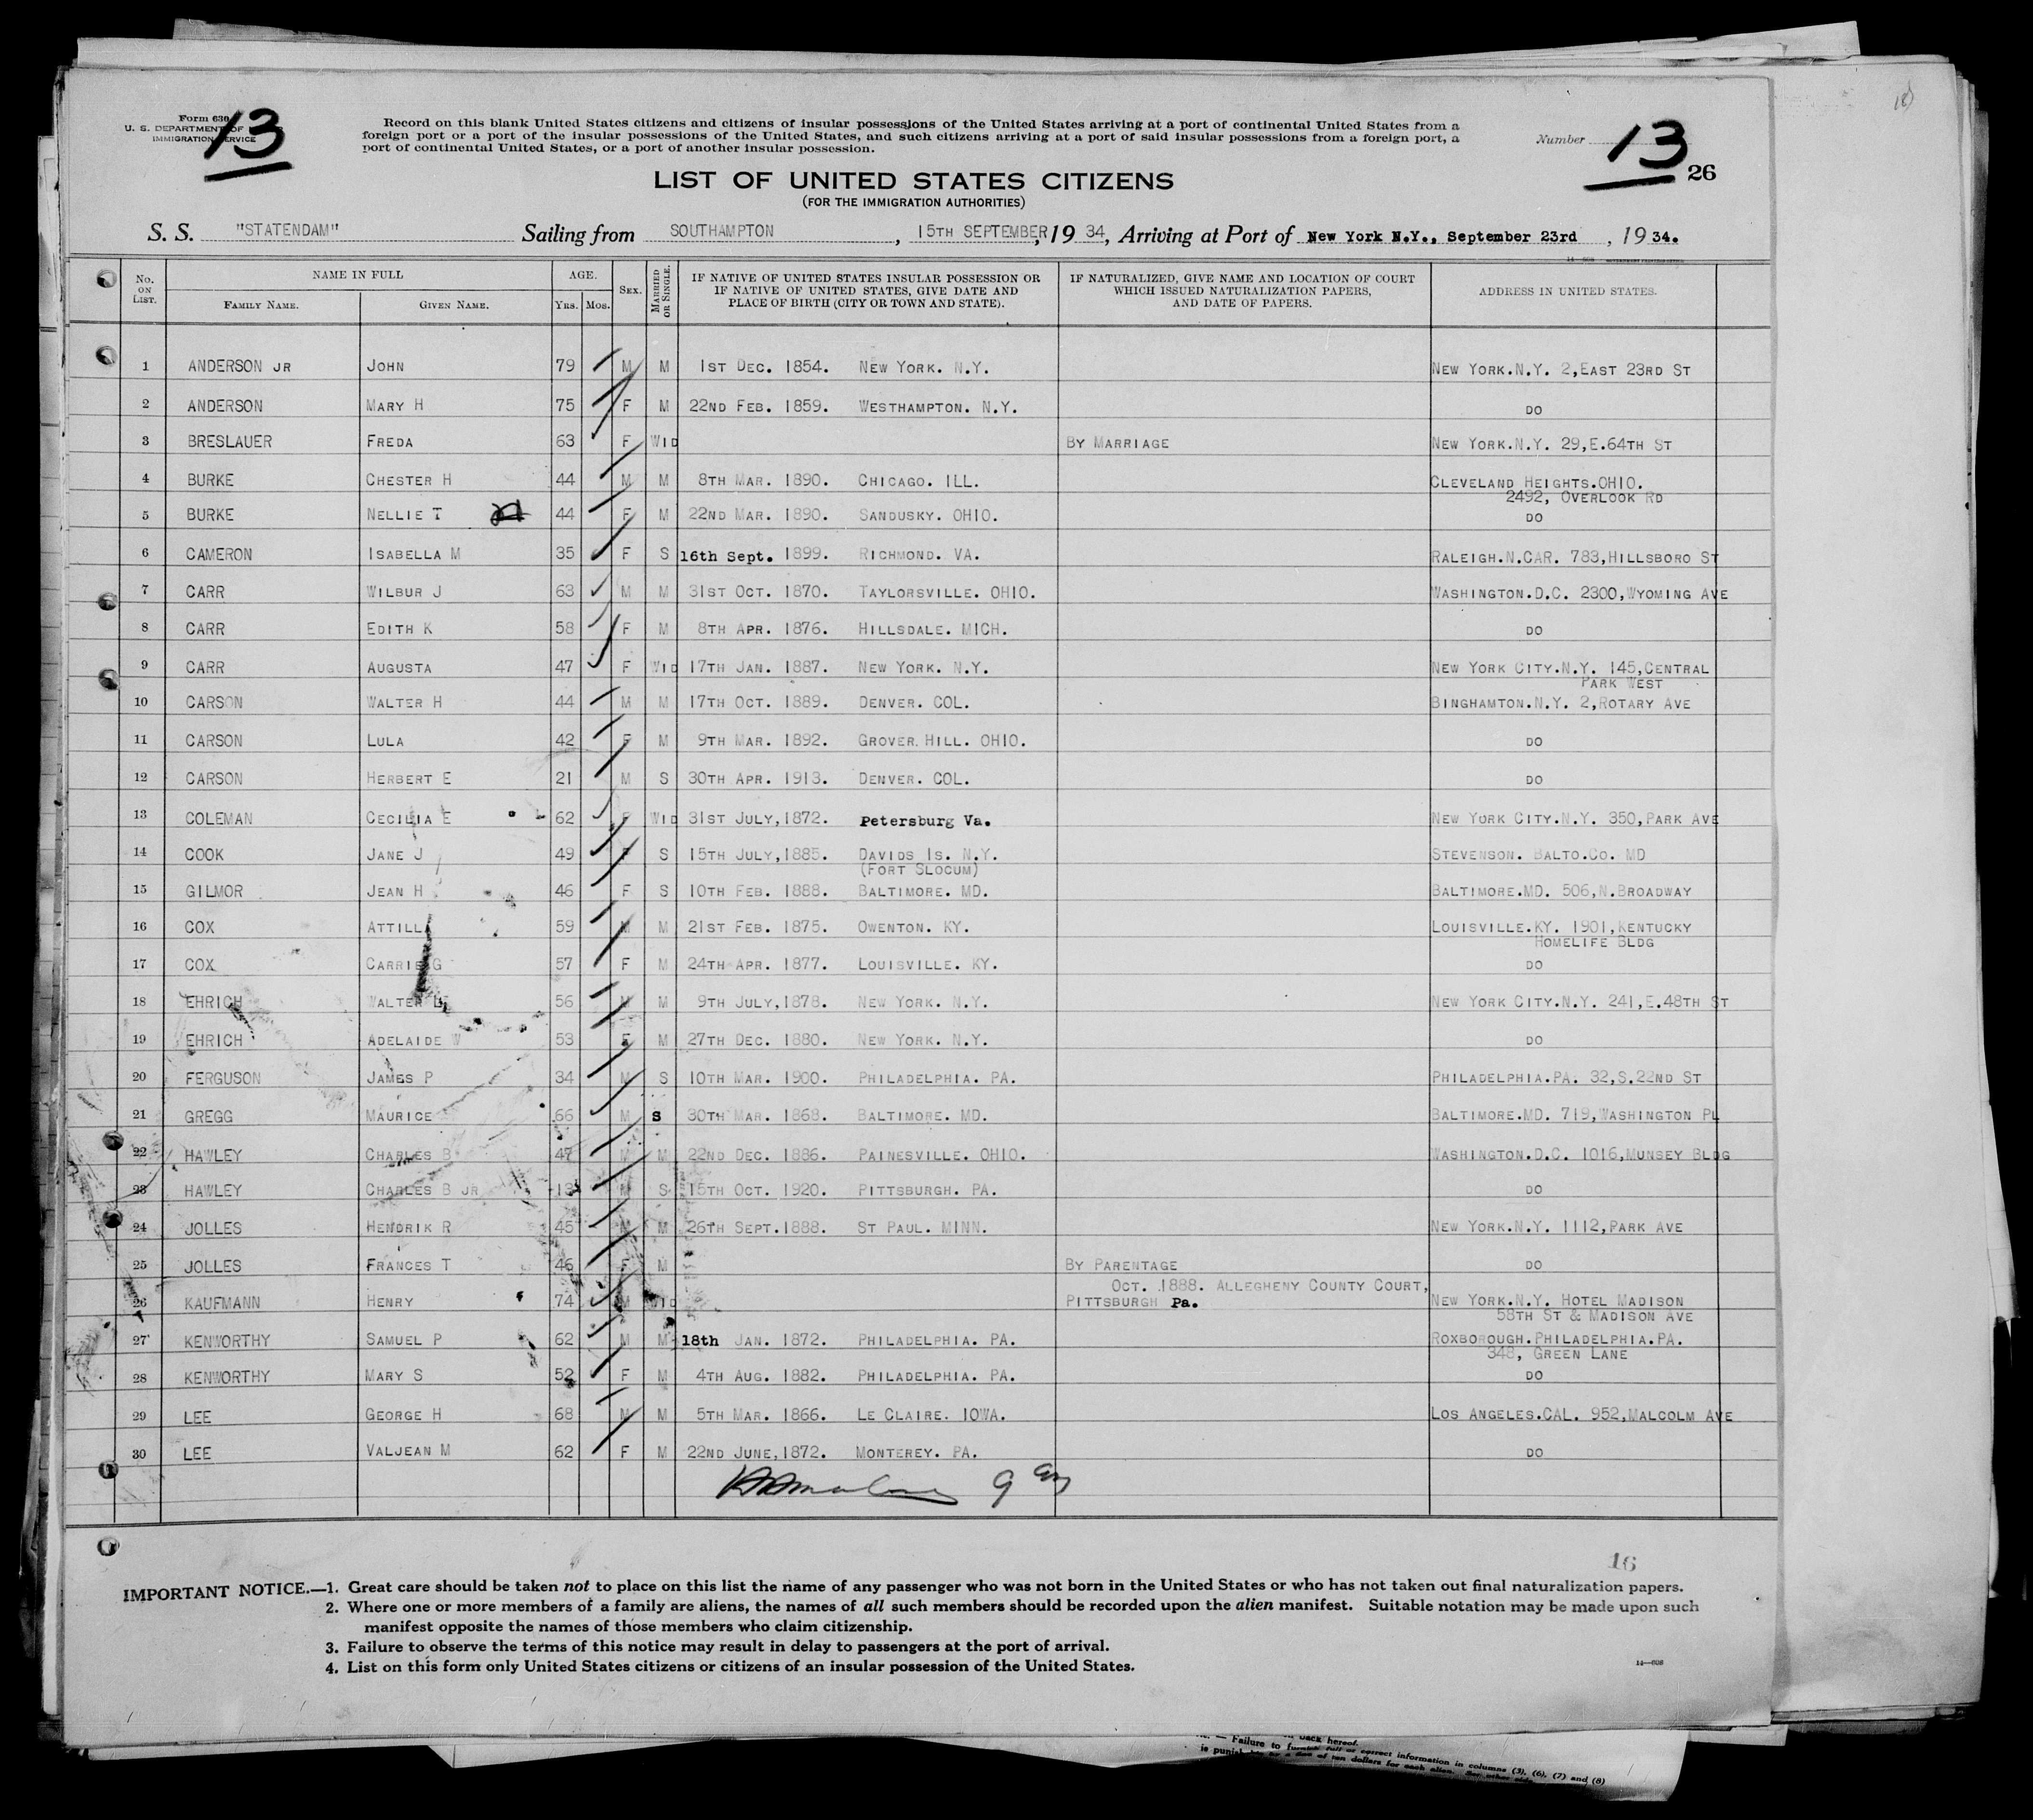 Form 630
U. S. DEPARTMENT OF
IMMIGRATION SERVICE
13
Record on this blank United States citizens and citizens of insular possessions of the United States arriving at a port of continental United States from a
foreign port or a port of the insular possessions of the United States, and such citizens arriving at a port of said insular possessions from a foreign port, a
port of continental United States, or a port of another insular possession.
Number 13
26
LIST OF UNITED STATES CITIZENS
(FOR THE IMMIGRATION AUTHORITIES)
S. S. "STATENDAM" Sailing from SOUTHAMPTON, 15TH SEPTEMBER, 1934, Arriving at Port of New York N.Y., September 23rd, 1934.
No. ON LIST. NAME IN FULL FAMILY NAME. GIVEN NAME. AGE. YRS. MOS. SEX. MARRIED OR SINGLE. IF NATIVE OF UNITED STATES INSULAR POSSESSION OR IF NATIVE OF UNITED STATES, GIVE DATE AND PLACE OF BIRTH (CITY OR TOWN AND STATE). IF NATURALIZED, GIVE NAME AND LOCATION OF COURT WHICH ISSUED NATURALIZATION PAPERS, AND DATE OF PAPERS. ADDRESS IN UNITED STATES.
1 ANDERSON JR JOHN 79 M M 1ST DEC. 1854. NEW YORK. N.Y. NEW YORK.N.Y. 2,EAST 23RD ST
2 ANDERSON MARY H 75 F M 22ND FEB. 1859. WESTHAMPTON. N.Y. DO
3 BRESLAUER FREDA 63 F WID BY MARRIAGE NEW YORK.N.Y. 29,E.64TH ST
4 BURKE CHESTER H 44 M M 8TH MAR. 1890. CHICAGO. ILL. CLEVELAND HEIGHTS.OHIO.
2492, OVERLOOK RD
5 BURKE NELLIE T 44 F M 22ND MAR. 1890. SANDUSKY. OHIO. DO
6 CAMERON ISABELLA M 35 F S 16th Sept. 1899. RICHMOND. VA. RALEIGH.N.CAR. 783,HILLSBORO ST
7 CARR WILBUR J 63 M M 31ST OCT. 1870. TAYLORSVILLE. OHIO. WASHINGTON.D.C. 2300,WYOMING AVE
8 CARR EDITH K 58 F M 8TH APR. 1876. HILLSDALE. MICH. DO
9 CARR AUGUSTA 47 F WID 17TH JAN. 1887. NEW YORK. N.Y. NEW YORK CITY.N.Y. 145,CENTRAL
PARK WEST
10 CARSON WALTER H 44 M M 17TH OCT. 1889. DENVER. COL. BINGHAMTON.N.Y. 2,ROTARY AVE
11 CARSON LULA 42 F M 9TH MAR. 1892. GROVER HILL. OHIO. DO
12 CARSON HERBERT E 21 M S 30TH APR. 1913. DENVER. COL. DO
13 COLEMAN CECILIA E 62 F WID 31ST JULY,1872. Petersburg Va. NEW YORK CITY.N.Y. 350,PARK AVE
14 COOK JANE J 49 F S 15TH JULY,1885. DAVIDS IS. N.Y. STEVENSON. BALTO.CO. MD
(FORT SLOCUM)
15 GILMOR JEAN H 46 F S 10TH FEB. 1888. BALTIMORE. MD. BALTIMORE.MD. 506,N.BROADWAY
16 COX ATTILLA 59 M M 21ST FEB. 1875. OWENTON. KY. LOUISVILLE.KY. 1901,KENTUCKY
HOMELIFE BLDG
17 COX CARRIE G 57 F M 24TH APR. 1877. LOUISVILLE. KY. DO
18 EHRICH WALTER 56 M M 9TH JULY,1878. NEW YORK. N.Y. NEW YORK CITY.N.Y. 241,E.48TH ST
19 EHRICH ADELAIDE W 53 F M 27TH DEC. 1880. NEW YORK. N.Y. DO
20 FERGUSON JAMES P 34 M S 10TH MAR. 1900. PHILADELPHIA. PA. PHILADELPHIA.PA. 32,S.22ND ST
21 GREGG MAURICE 66 M S 30TH MAR. 1868. BALTIMORE. MD. BALTIMORE.MD. 719,WASHINGTON PL
22 HAWLEY CHARLES B 47 M M 22ND DEC. 1886. PAINESVILLE. OHIO. WASHINGTON.D.C. 1016,MUNSEY BLDG
23 HAWLEY CHARLES B JR 13 M S 15TH OCT. 1920. PITTSBURGH. PA. DO
24 JOLLES HENDRIK R 45 M M 26TH SEPT.1888. ST PAUL. MINN. NEW YORK.N.Y. 1112,PARK AVE
25 JOLLES FRANCES T 46 F M BY PARENTAGE DO
OCT. 1888. ALLEGHENY COUNTY COURT,
26 KAUFMANN HENRY 74 M WID PITTSBURGH Pa. NEW YORK.N.Y. HOTEL MADISON
58TH ST & MADISON AVE
27 KENWORTHY SAMUEL P 62 M M 18th JAN. 1872. PHILADELPHIA. PA. ROXBOROUGH.PHILADELPHIA.PA.
348, GREEN LANE
28 KENWORTHY MARY S 52 F M 4TH AUG. 1882. PHILADELPHIA. PA. DO
29 LEE GEORGE H 68 M M 5TH MAR. 1866. LE CLAIRE. IOWA. LOS ANGELES.CAL. 952,MALCOLM AVE
30 LEE VALJEAN M 62 F M 22ND JUNE,1872. MONTEREY. PA. DO
16
IMPORTANT NOTICE.—1. Great care should be taken not to place on this list the name of any passenger who was not born in the United States or who has not taken out final naturalization papers.
2. Where one or more members of a family are aliens, the names of all such members should be recorded upon the alien manifest. Suitable notation may be made upon such
manifest opposite the names of those members who claim citizenship.
3. Failure to observe the terms of this notice may result in delay to passengers at the port of arrival.
4. List on this form only United States citizens or citizens of an insular possession of the United States.
14—608
back hereof.
Failure to furnish full or correct information in columns (3), (6), (7) and (8)
of ten dollars for each alien.